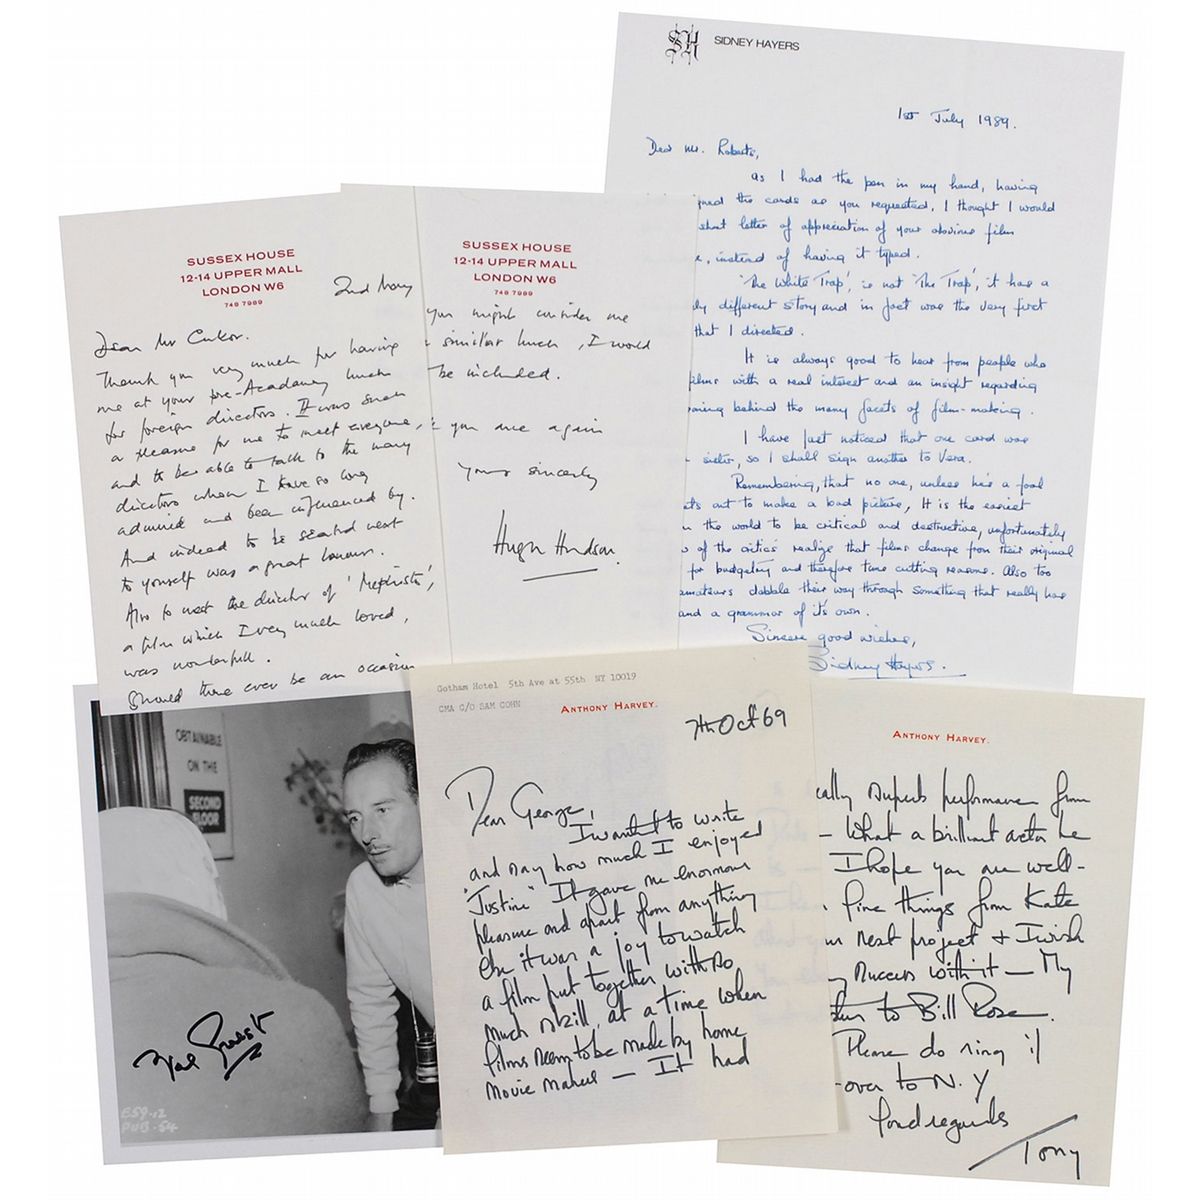 SUSSEX HOUSE
12-14 UPPER MALL
LONDON W6
748 7989
2nd May
Dear Mr Cukor.
Thank you very much for having
me at your pre-Academy lunch
for foreign directors. It was such
a pleasure for me to meet everyone,
and to be able to talk to the many
directors whom I have so long
admired and been influenced by.
And indeed to be seated next
to yourself was a great honour.
Also to meet the director of 'Mephisto',
a film which I very much loved,
was wonderful.
Should there ever be an occasion
SUSSEX HOUSE
12-14 UPPER MALL
LONDON W6
748 7989
you might consider me
similar lunch, I would
be included.
you once again
Yours sincerely
Hugh Hudson.
SH
SIDNEY HAYERS
1st July 1989.
Dear Mr. Roberts,
as I had the pen in my hand, having
signed the cards as you requested, I thought I would
short letter of appreciation of your obvious film
, instead of having it typed.
'The White Trap', is not 'The Trap', it has a
ly different story and in fact was the very first
that I directed.
It is always good to hear from people who
films with a real interest and an insight regarding
oning behind the many facets of film-making.
I have just noticed that one card was
sister, so I shall sign another to Vera.
Remembering, that no one, unless he's a fool
sets out to make a bad picture, It is the easiest
in the world to be critical and destructive, unfortunately
of the critics realize that films change from their original
for budgeting and therefore time cutting reasons. Also too
amateurs dabble their way through something that really has
and a grammar of it's own.
Sincere good wishes,
Sidney Hayers.
OBTAINABLE
ON THE
SECOND
FLOOR
Val Guest
E59-12
PUB-54
Gotham Hotel 5th Ave at 55th NY 10019
CMA C/O SAM COHN
ANTHONY HARVEY.
7th Oct 69
Dear George,
I wanted to write
and say how much I enjoyed
"Justine" It gave me enormous
pleasure and apart from anything
else it was a joy to watch
a film put together with so
much skill, at a time when
films seem to be made by home
movie makers — It had
ANTHONY HARVEY.
ally superb performance from
— What a brilliant actor he
I hope you are well -
fine things from Kate
next project & I wish
success with it — My
to Bill Rose.
Please do ring if
over to N.Y
Fond regards
Tony